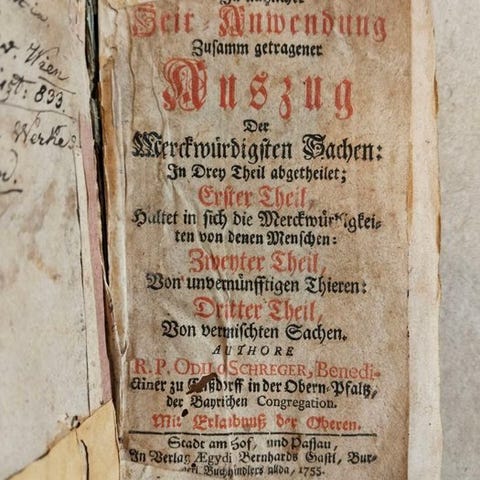 Wien
833
Werke
Zeit-Anwendung
Zusamm getragener
Auszug
Der
Merckwürdigsten Sachen:
In Drey Theil abgetheilet;
Erster Theil,
Haltet in sich die Merckwürdigkei-
ten von denen Menschen:
Zweyter Theil,
Von unvernünfftigen Thieren:
Dritter Theil,
Von vermischten Sachen.
AUTHORE
R. P. ODILO SCHREGER, Benedi-
ctiner zu Enßdorff in der Obern-Pfaltz,
der Bayrichen Congregation.
Mit Erlaubnuß der Oberen.
Stadt am Hof, und Passau,
In Verlag Ægydi Bernhards Gastl, Bur-
gerl. Buchhändlers allda, 1755.